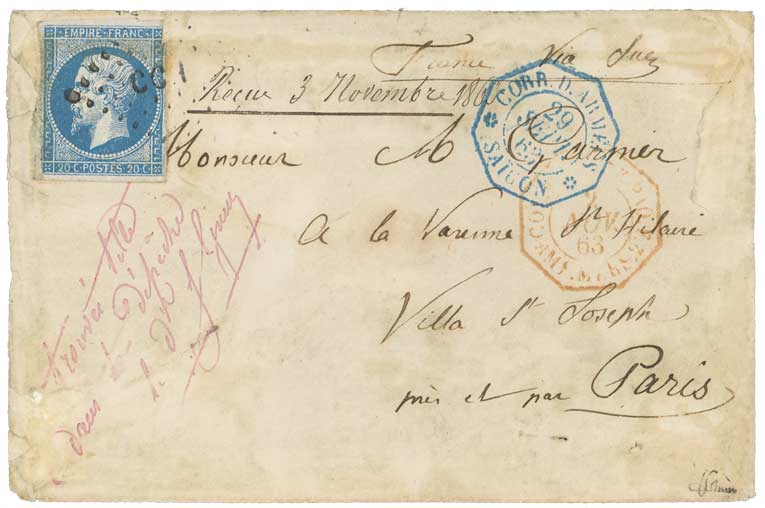 EMPIRE FRANC
20 C POSTES 20 C
France Via Suez
Reçue 3 Novembre 186
CORR. D. ARMÉES
29
SEPT
63
SAIGON
Monsieur M Garnier
A la Varenne St Hilaire
NOV.
63
Villa St Joseph
près et par Paris
trouvée
dans la dépêche
de